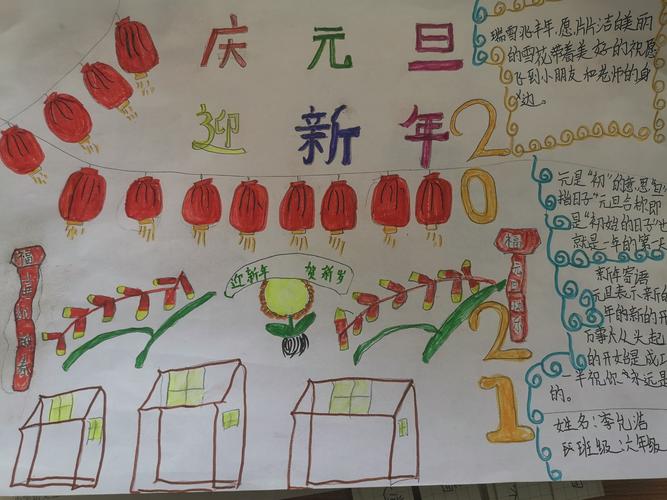 庆元旦
迎新年
2021
瑞雪兆丰年,愿片片洁的美丽
的雪花带着美好的祝愿
飞到小朋友和老师的身
边。
迎新年 贺新岁
福
福
元是“初”的意思“旦
指日子”元旦合称即
是“初始的日子”也
就是一年的第一
新年寄语
元旦表示新的
年的新的开
万事大从头起
的开始是成功
一半祝你永远是
的。
姓名:李
班级:六年级